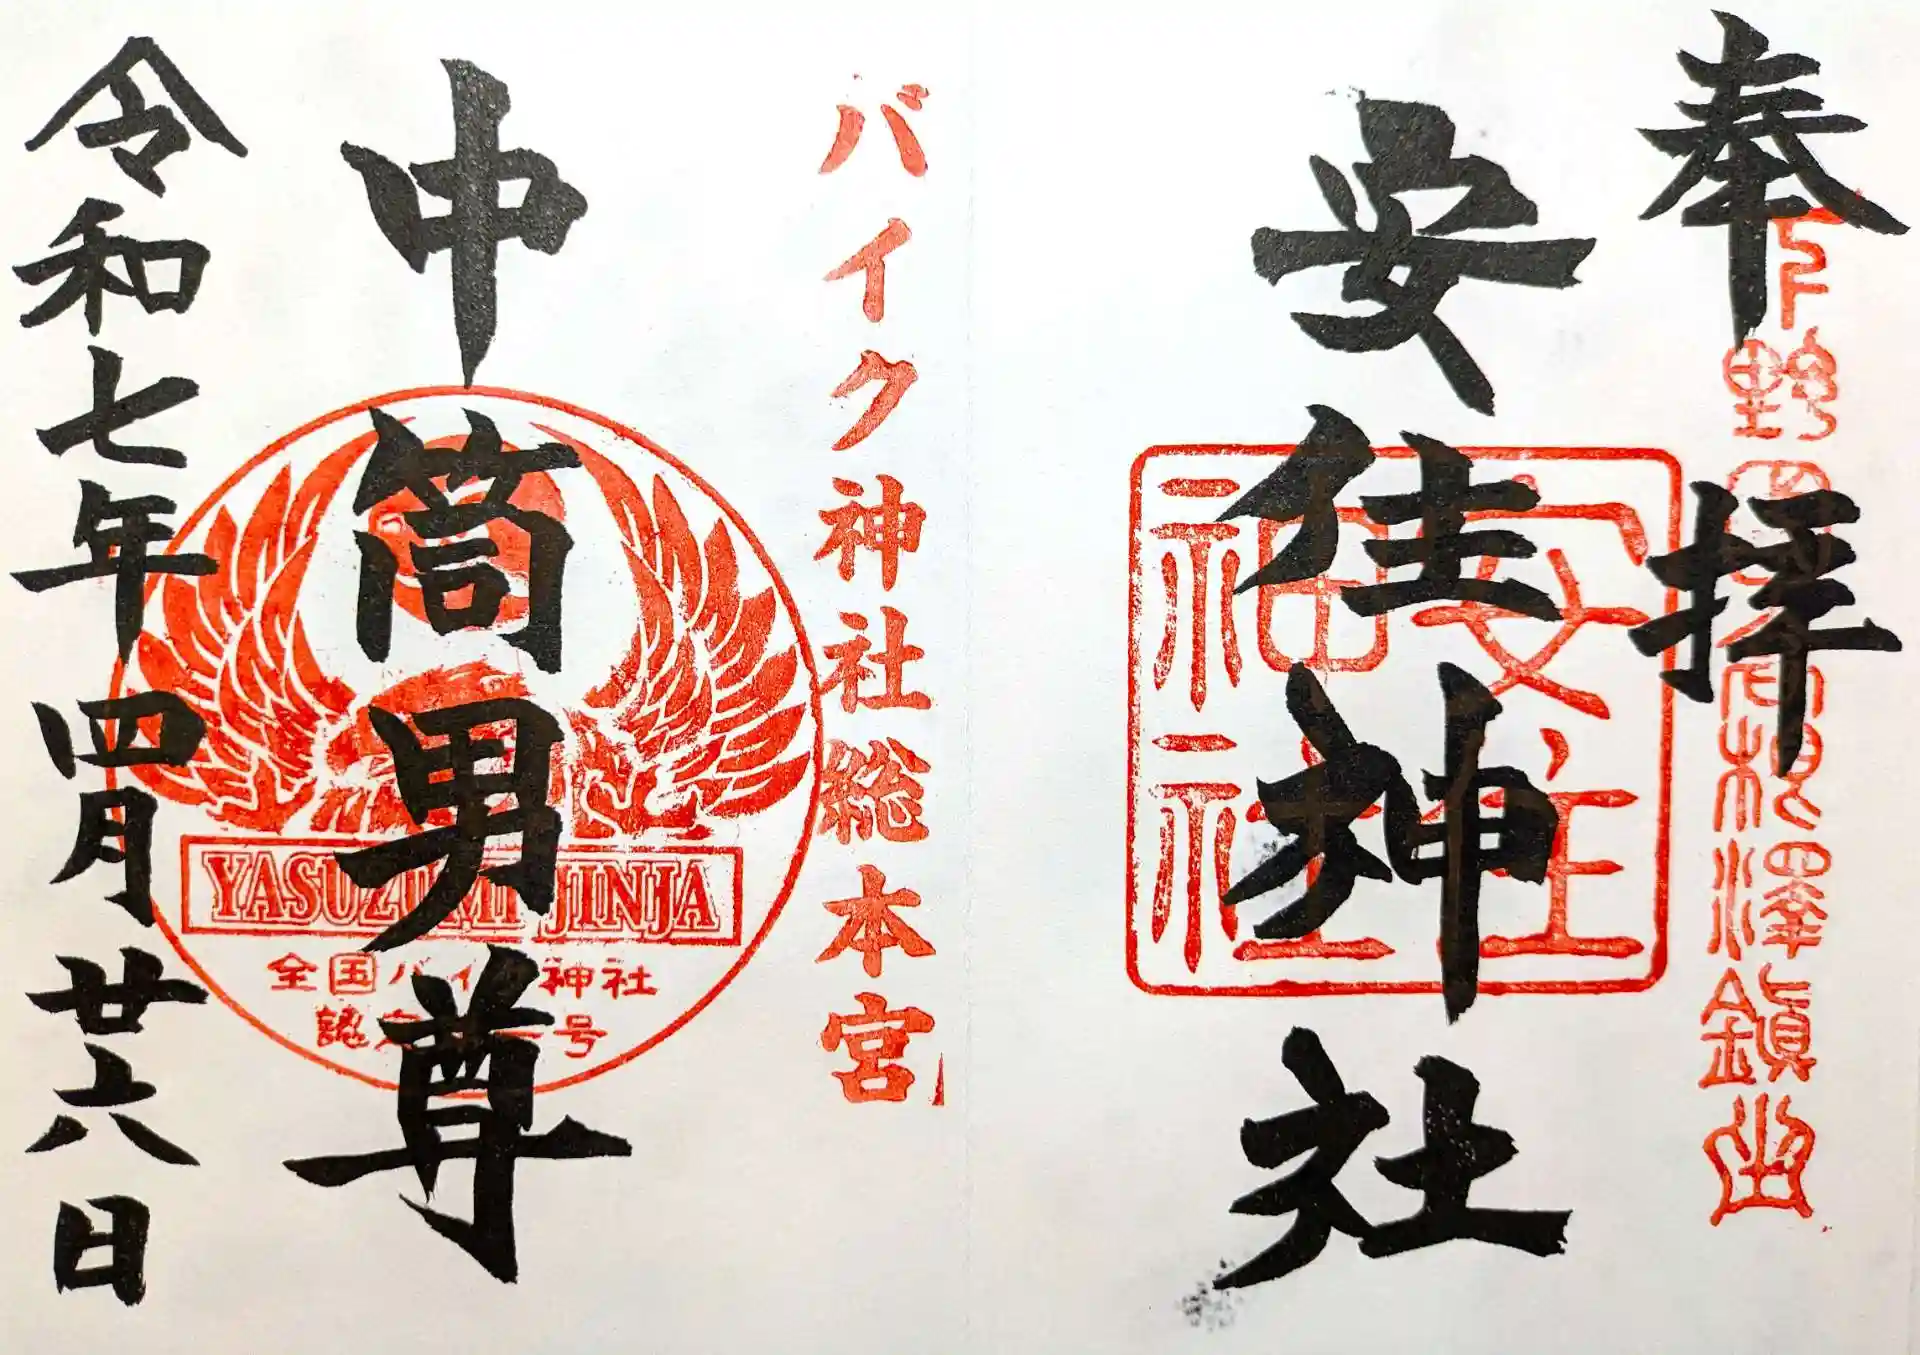 奉拝
下野
根澤鎮
安住神社
安住
神社
バイク神社総本宮
中筒男尊
YASUZUMI JINJA
全国バイク神社
認定一号
令和七年四月廿六日